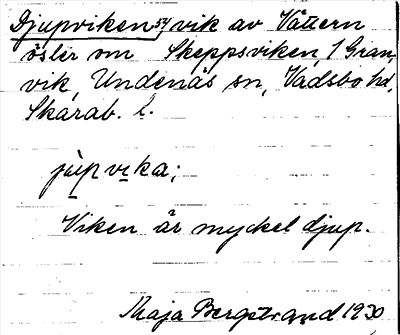 Djupviken 57, vik av Vättern
öster om Skeppsviken, 1 Gran-
vik, Undenäs sn, Vadsbo hd,
Skarab. l.
jùpvika;
Viken är myckel djup.
Maja Bergstrand 1930